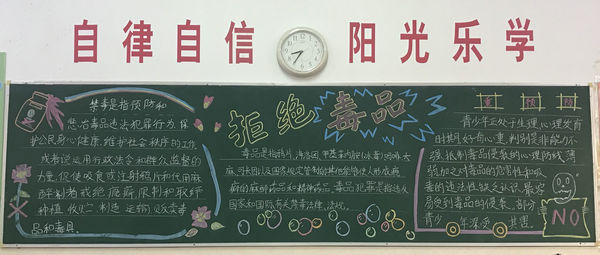 自律自信 阳光乐学
禁毒是指预防和
惩治毒品违法犯罪行为,保
护公民身心健康,维护社会秩序的工作
或者说运用行政法令和群众监督的
力量,促使吸食或注射鸦片和代用麻
醉剂者戒绝瘾癖,限制和取缔
种植、收贮、制造、运输、贩卖毒
品和毒具。
拒绝毒品
毒品是指鸦片、海洛因、甲基苯丙胺(冰毒)吗啡、大
麻、可卡因以及国务规定管制的其他能够使人形成瘾
癖的麻醉药品和精神药品,毒品犯罪是指违反
国家和国际有关禁毒法律、法规。
重 预 防
青少年正处于生理心理发育
时期,好奇心重,判别是非能力不
强,抵制毒品侵袭的心理防线薄
弱,加之对毒品的危害性和吸
毒的违法性缺乏认识,最容
易受到毒品的侵袭。部分
青少年深受其害。
NO